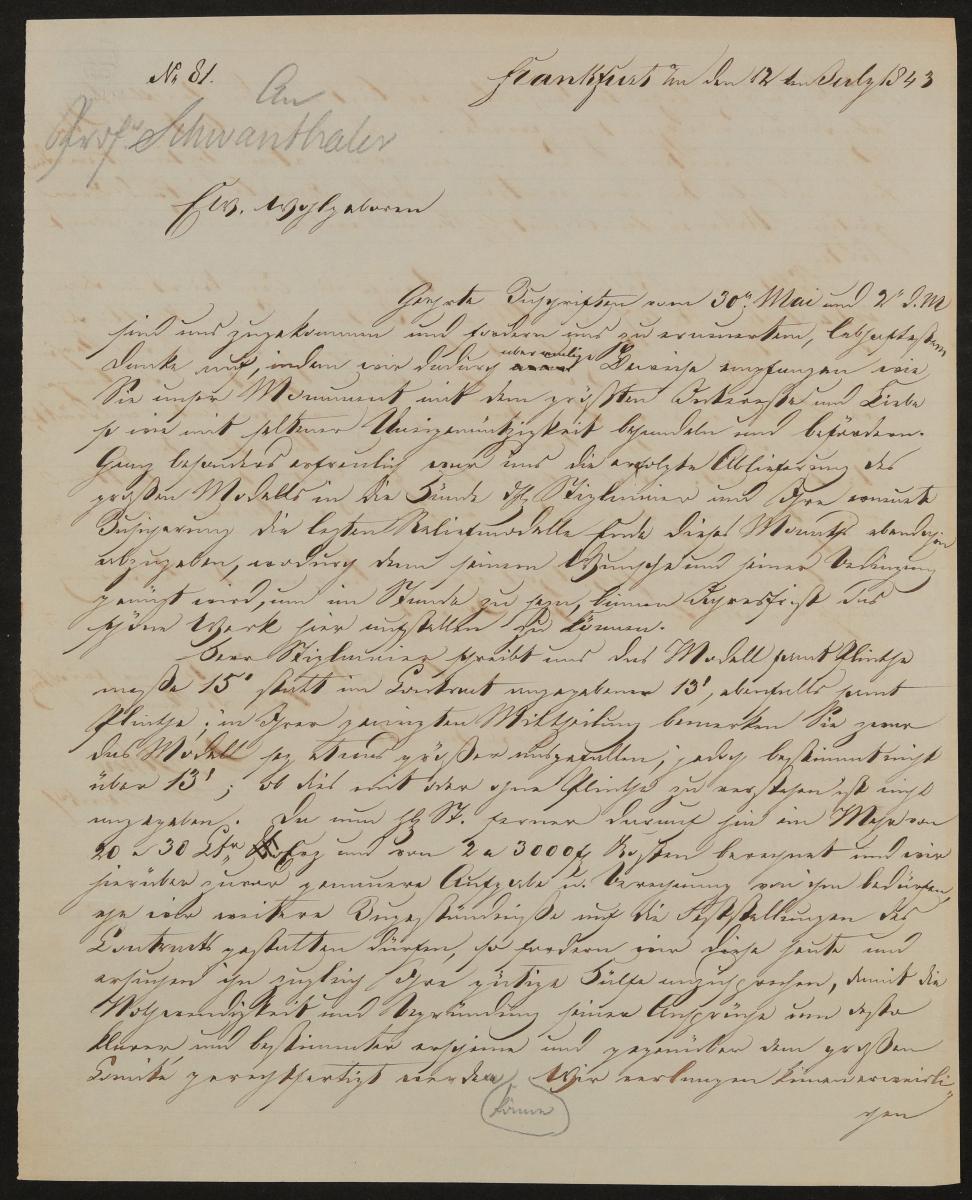 No 81.
Frankfurt am den 12 ten July 1843
An
Prof. Schwanthaler
Ew. Wohlgeboren
Geehrte Zuschriften vom 30n. Mai und 2n d. M
sind uns zugekommen und fordern uns zu erneuertem, lebhaftestem
Danke auf, indem wir dadurch abermalige Beweise empfangen wie
Sie unser Monument mit dem größten Interesse und Liebe
so wie mit seltener Uneigennützigkeit behandeln und befördern.
Ganz besonders erfreulich war uns die erfolgte Ablieferung des
großen Modells in die Hände Stiglmaier und Ihre erneute
Zusicherung die letzten Reliefmodelle Ende dieses Monaths ebendahin
abzugeben, wodurch dann seinem Wunsche und seiner Bedingung
genügt wird, um im Stande zu seyn, binnen Jahresfrist das
schöne Werk hier aufstellen zu können.
Herr Stiglmaier schreibt uns das Modell samt Plinthe
messe 15' statt im Contract angegebener 13', ebenfalls samt
Plinthe; in Ihrer geneigten Mittheilung bemerken Sie zwar
das Modell sey etwas größer ausgefallen, jedoch bestimmt nicht
über 13'; ob dies mit oder ohne Plinthe zu verstehen ist nicht
angegeben. Da nun H St. ferner darauf hin ein Mehr von
20 a 30 Ctr Erz und von 2 a 3000 f Kosten berechnet und wir
hierüber zuvor genauere Aufgabe u. Berechnung von ihm bedürfen,
ehe wir weitere Zugeständnisse auf die Feststellungen des
Contracts gestatten dürfen, so fordern wir diese heute und
ersuchen ihn zugleich Ihre gütige Hülfe anzusprechen, damit die
Nothwendigkeit und Begründung seiner Ansprüche um desto
klarer und bestimmter erscheine und gegenüber dem großen
Comité gerechtfertigt werden Wir verlangen keinen erweisli-
könne
chen